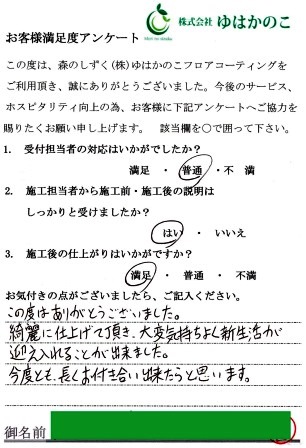 株式会社 ゆはかのこ
お客様満足度アンケート
この度は、森のしずく(株)ゆはかのこフロアコーティングを
ご利用頂き、誠にありがとうございました。今後のサービス、
ホスピタリティ向上の為、お客様に下記アンケートへご協力を
賜りたくお願い申し上げます。 該当欄を○で囲って下さい。
1. 受付担当者の対応はいかがでしたか?
満足 ・ 普通 ・ 不 満
2. 施工担当者から施工前・施工後の説明は
しっかりと受けましたか?
はい ・ いいえ
3. 施工後の仕上がりはいかがですか?
満足 ・ 普通 ・ 不 満
お気付きの点がございましたら、ご記入ください。
この度はありがとうございました。
綺麗に仕上げて頂き、大変気持ちよく新生活が
迎え入れることが出来ました。
今度とも、長くお付き合い出来たらと思います。
御名前